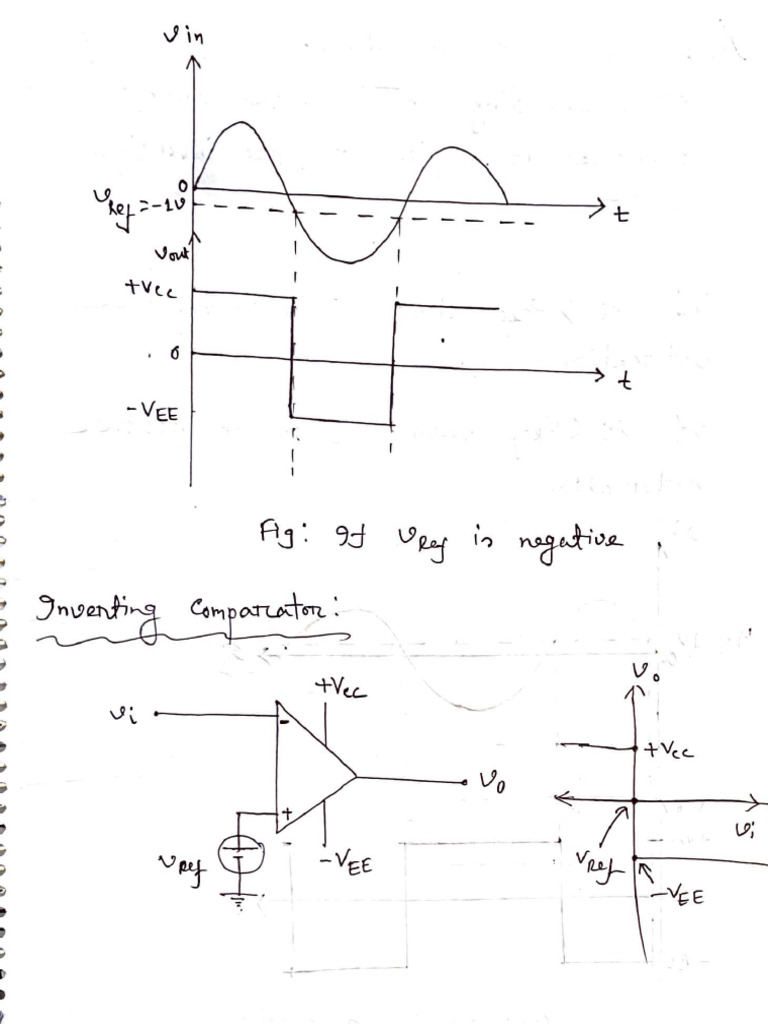 Vin
0
VRef=-1V
t
Vout
+Vcc
0
t
-VEE
Fig: If VRef is negative
Inverting Comparator:
Vo
+Vcc
Vi
-
+Vcc
Vo
+
Vi
VRef
-VEE
VRef
-VEE